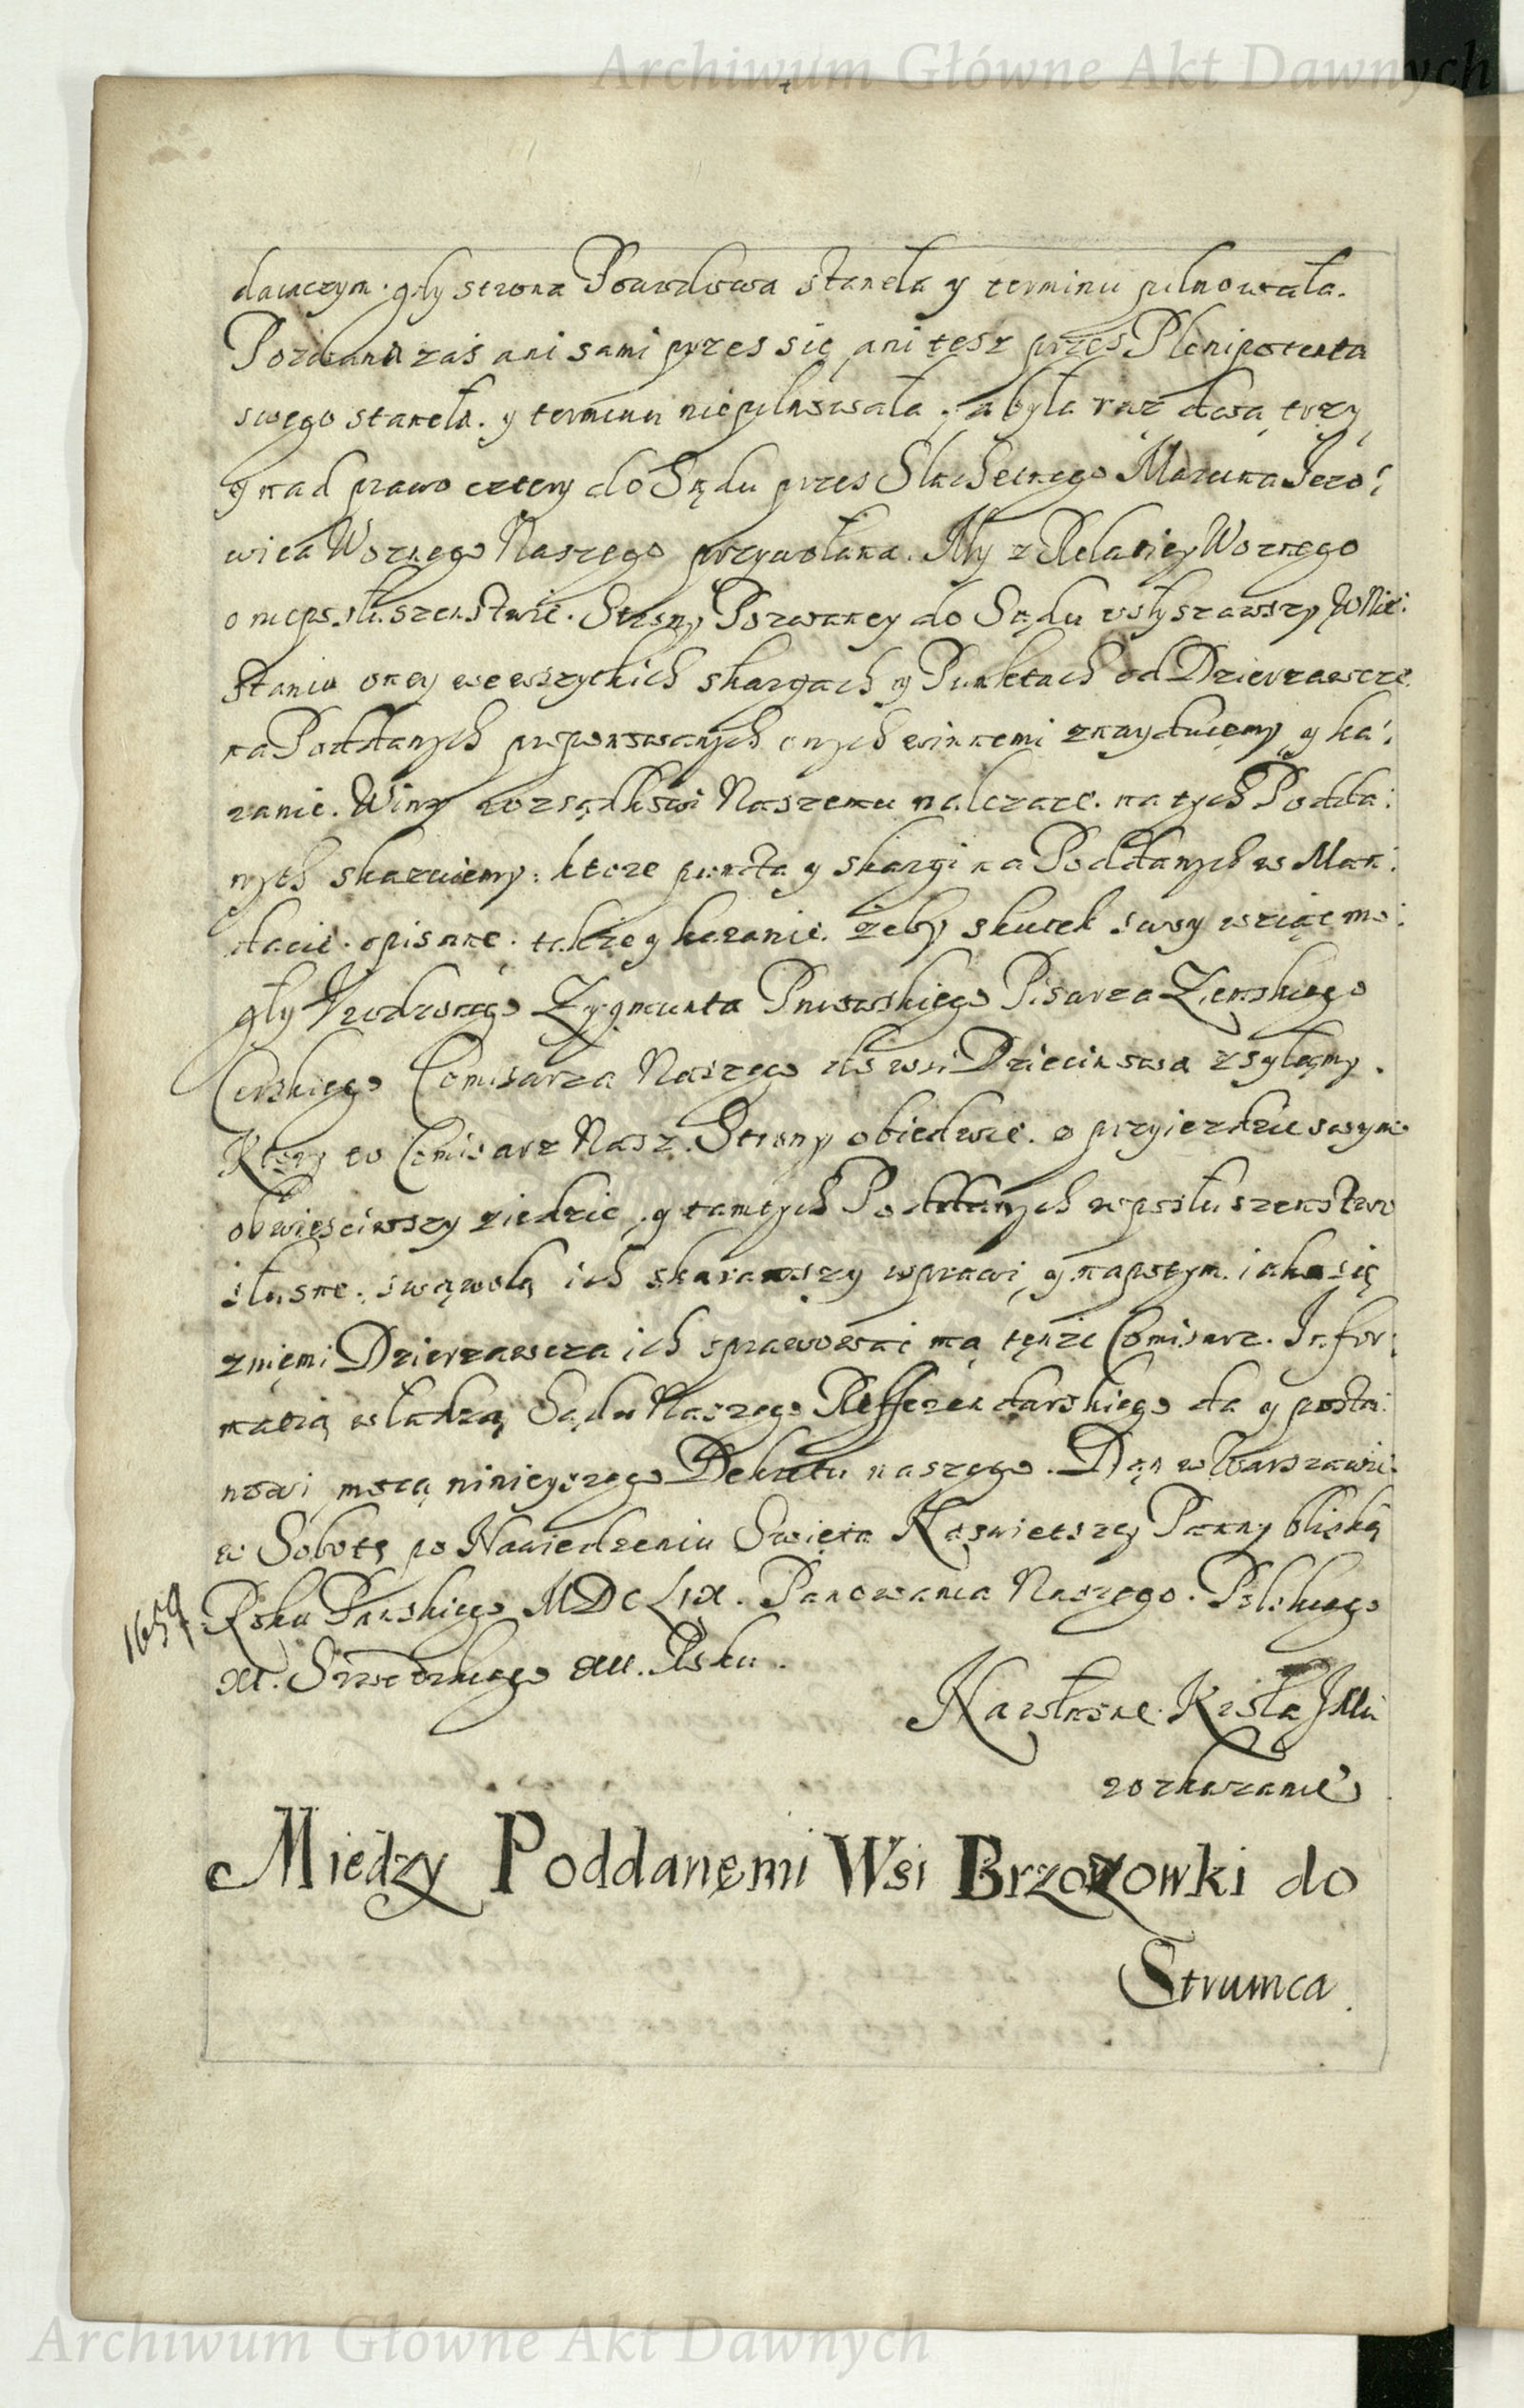 Archiwum Główne Akt Dawnych
daiączym. gdy strona Powodowa staneła y terminu pilnowała.
Pozwana zaś ani sami przes się ani tesz przes Plenipotenta
swego staneła. y terminu niepilnowała, a była raz dwa trzy
y nad prawo cztery do Sądu przes Slachetnego Marcina
Woznego Naszego przywołana. My z Relaciey Woznego
o nieposłuszenstwie. Strony Pozwaney do Sądu usłyszawszy W Nie:
staniu oney we wszytkich skargach y Punktach od Dzierzawcze
na Poddanych proponowanych onych winnemi znayduiemy y ka:
ranie. Winy rozsądkowi Naszemu nalezące. na tych Podda:
nych skazuiemy: ktore puncta y skargi na Poddanych w Man:
dacie. opisane. także y karanie. żeby skutek swoy wziąć mo:
gły Urodzonego Zygmunta Pniewskiego Pisarza Ziemskiego
Cerskiego Comisarza Naszego do wsi Dziecinowa zsyłamy.
Ktory to Comisarz Nasz. Strony obiedwie. o przyiezdzie swym
obwiesciwszy ziedzie, y tamtych Poddanych w posłuszenstwo
słusne. swąwolą ich skarawszy wprawi, y napotym. iako się
zniemi Dzierzawcza ich sprawowac ma tęnże Comisarz. Infor:
macią władzą Sądu Naszego Refferendarskiego da y posta:
nowi mocą ninieyszego Dekretu naszego. Dan w Warszawie.
w Sobotę po Nawiedzeniu Swięta Naswietszey Panny bliską
1659
Roku Panskiego MDCLIX. Panowania Naszego. Polskiego
XI. Szwedzkiego XII. Roku.
Na własne. Krola JMci
rozkazanie
Miedzy Poddanęmi Wsi Brzozowki do
Strumca.
Archiwum Główne Akt Dawnych